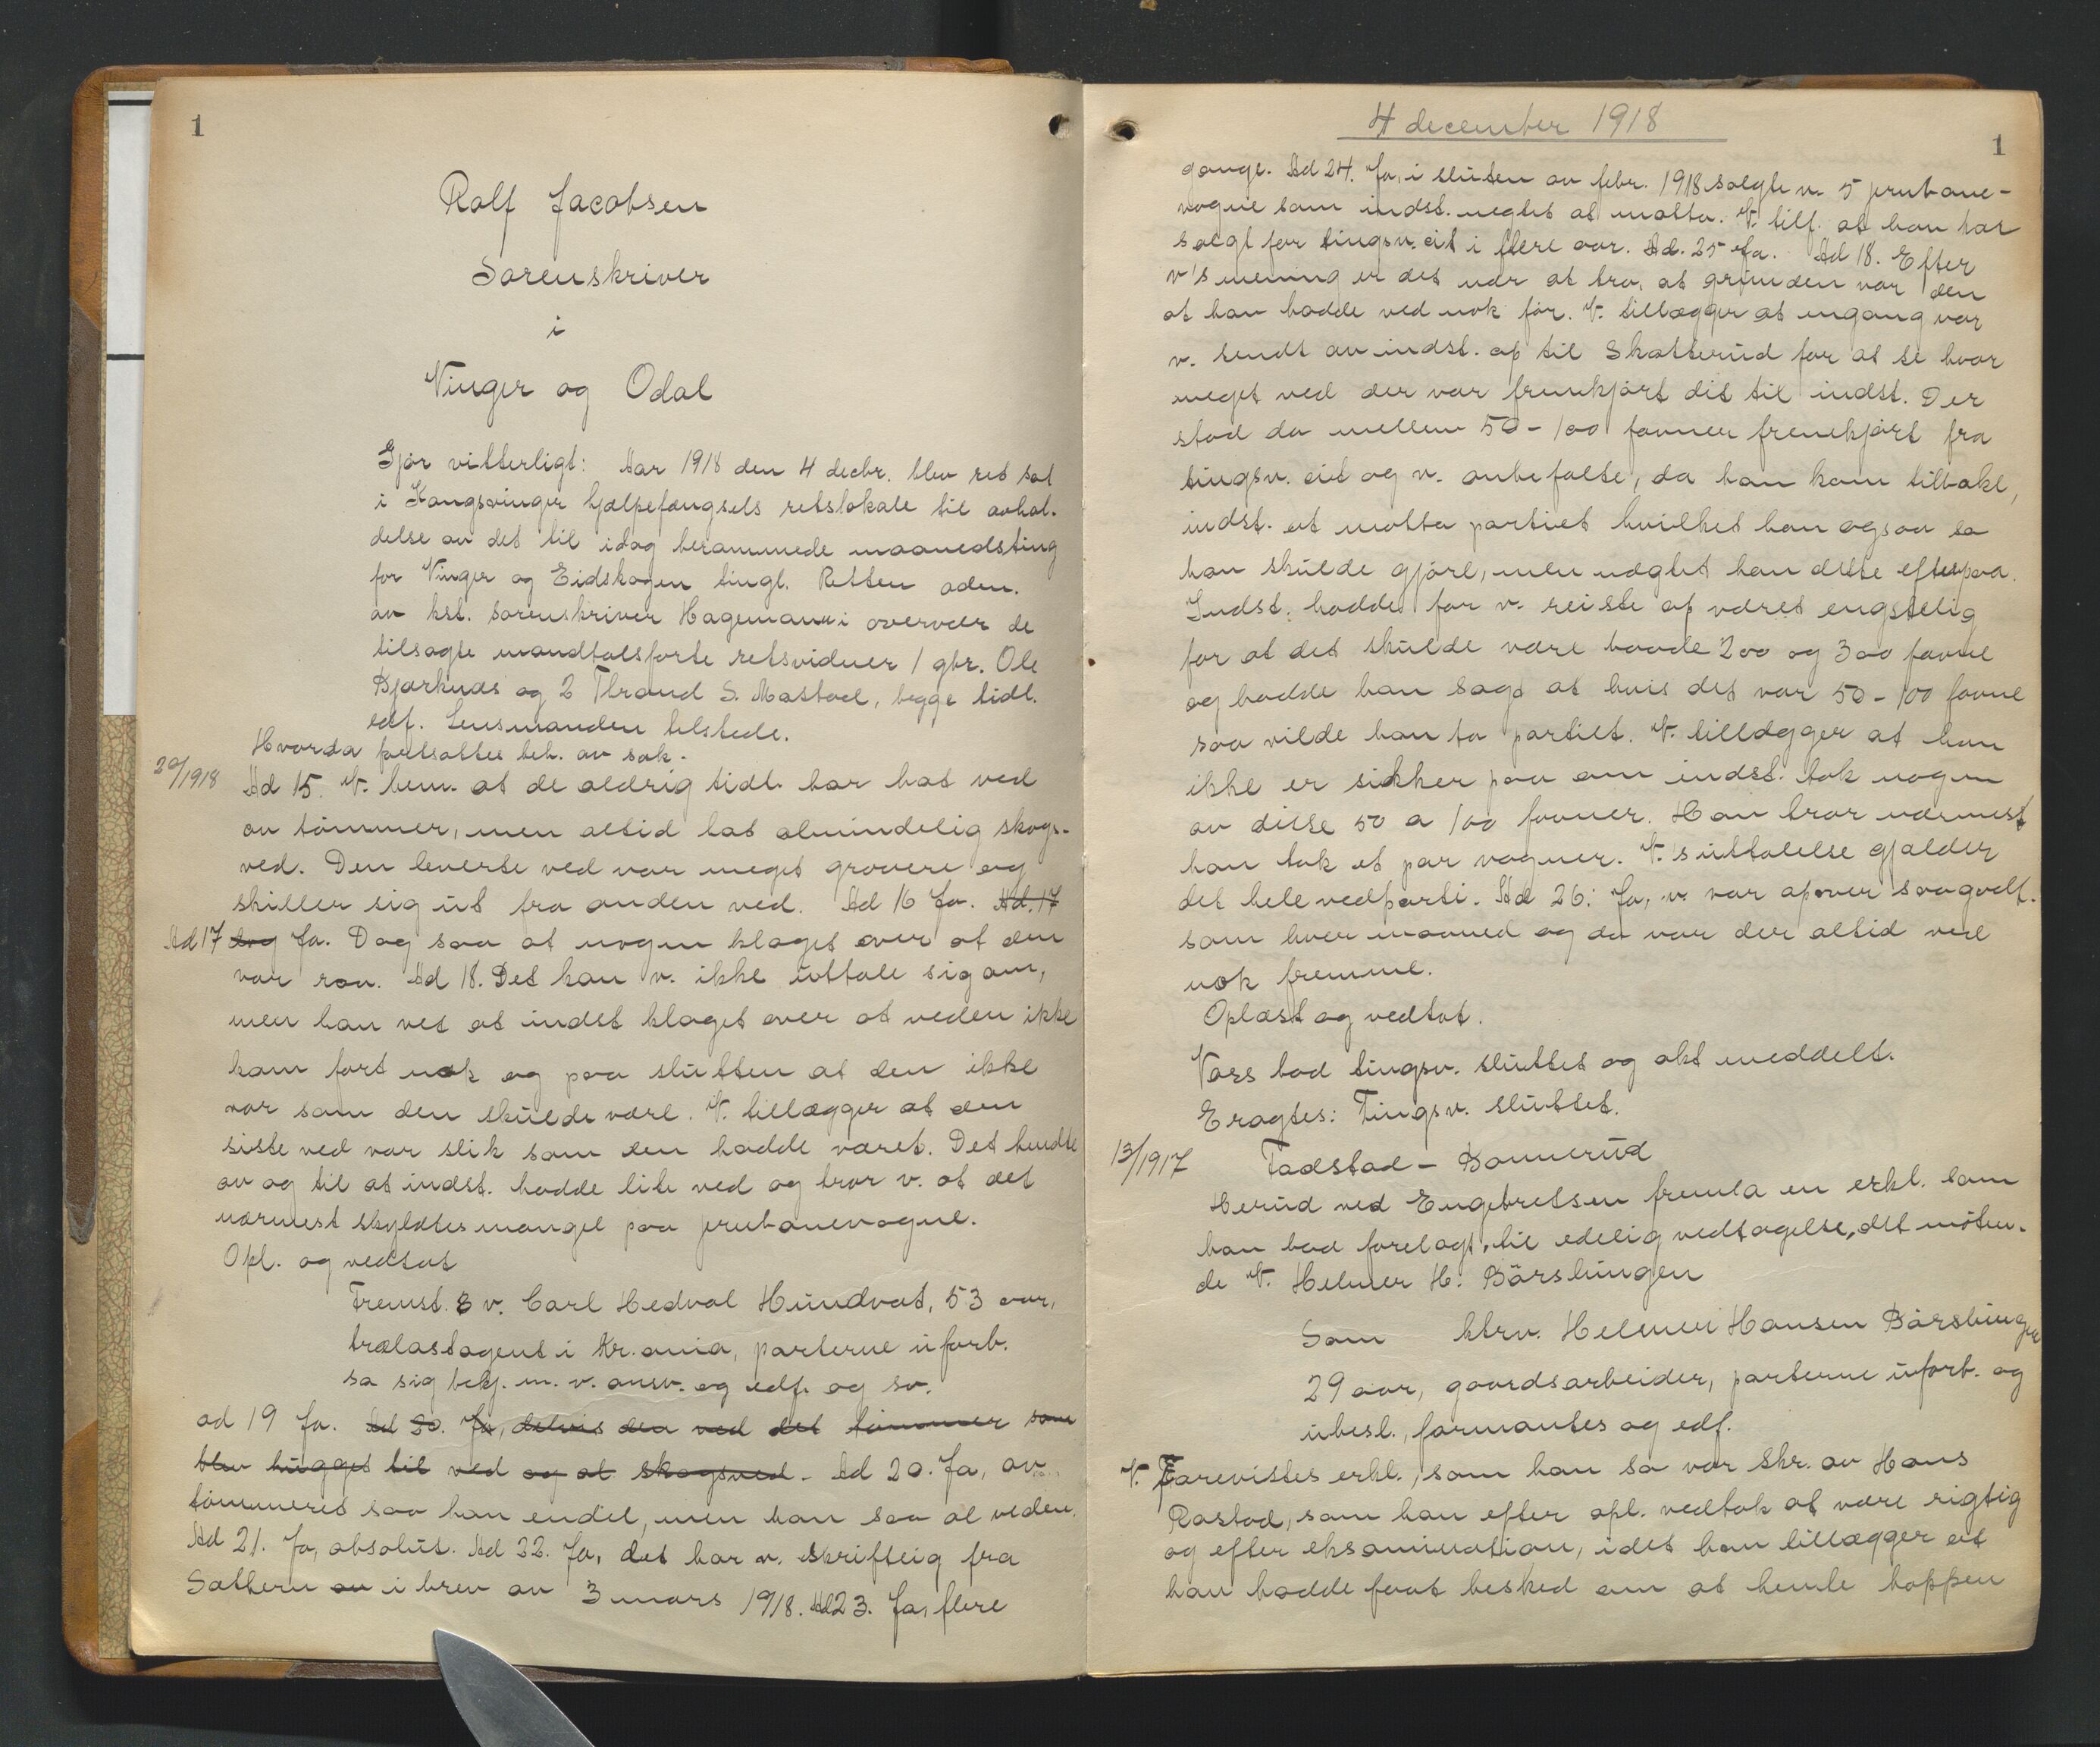 1
Rolf Jacobsen
Sorenskriver
i
Vinger og Odal
Gjør vitterligt: Aar 1918 den 4 decbr. blev ret sat
i Kongsvinger hjælpefængsels retslokale til avhol-
delse av det til idag berammede maanedsting
for Vinger og Eidskogen tingl. Retten adm.
av kst. sorenskriver Hagemann i overvær de
tilsagte mandtalsførte retsvidner 1 gbr. Ole
Bjørknes og 2 Thrond S. Mastad, begge tidl.
edf. Lensmanden tilstede.
Hvorda fortsattes beh. av sak.
20/1918 Ad 15. V. bem. at de aldrig tidl. har hat ved
av tømmer, men altid hat almindelig skogs-
ved. Den leverte ved var meget grovere og
skiller sig ut fra anden ved. Ad 16 Ja. Ad. 17
Ad 17 Ja. Dog saa at nogen klaget over at den
var raa. Ad 18. Det kan v. ikke uttale sig om,
men han vet at indst klaget over at veden ikke
kom fort nok og paa slutten at den ikke
var som den skulde være. V. tillægger at den
siste ved var slik som den hadde været. Det hendte
av og til at indst. hadde lite ved og tror v. at det
nærmest skyldtes mangel paa jernbanevogne.
Opl. og vedtat
Fremst. 8 v. Carl Hedval Hundvat, 53 aar,
trælastagent i Kr.ania, parterne uforb.
sa sig bekj. m. v. ansv. og edf. og sv.
ad 19 Ja. Ad 20. Ja, delvis den ved det tømmer som
blev hugget til ved og at skogsved. Ad 20. Ja, av
tømmeret saa han endel, men han saa al veden.
Ad 21. Ja, absolut. Ad 22. Ja, det har v. skriftlig fra
Sættern av i brev av 3 mars 1918. Ad 23. Ja, flere
4 december 1918
1
gange. Ad 24. Ja, i slutten av febr. 1918 solgte v. 5 jernbane-
vogne som indst. negtet at motta. V. tilf. at han har
solgt for tingsv. eit i flere aar. Ad. 25 Ja. Ad 18. Efter
v's mening er det nær at tro, at grunden var den
at han hadde ved nok før. V. tillægger at engang var
v. sendt av indst. op til Skotterud for at se hvor
meget ved der var fremkjørt dit til indst. Der
stod da mellem 50-100 favner fremkjørt fra
tingsv. eit og v. anbefalte, da han kom tilbake,
indst. at motta partiet hvilket han ogsaa sa
han skulde gjøre, men negtet han dette efterpaa.
Indst. hadde før v. reiste op været engstelig
for at det skulde være baade 200 og 300 favne
og hadde han sagt at hvis det var 50-100 favne
saa vilde han ta partiet. V. tillægger at han
ikke er sikker paa om indst. tok nogen
av disse 50 a 100 favner. Han tror nærmest
han tok et par vogner. V.'s uttalelse gjælder
det hele vedparti. Ad 26: Ja, v. var opover saagodt-
som hver maaned og da var der altid ved
nok fremme.
Oplæst og vedtat.
Vass bad tingsv. sluttet og akt meddelt.
Eragtes: Tingsv. sluttet.
13/1917 Tadstad - Bonnerud
Herud ved Engebretsen fremla en erkl. som
han bad forelagt, til edelig vedtagelse, det møten-
de V. Helmer H. Børslungen
Som hrv. Helmer Hansen Børslungen
29 aar, gaardsarbeider, parterne uforb. og
ubesl., formantes og edf.
V. Forevistes erkl., som han sa var skr. av Hans
Rastad, som han efter opl. vedtok at være rigtig
og efter eksamination, idet han tillægger at
han hadde faat besked om at hente hoppen